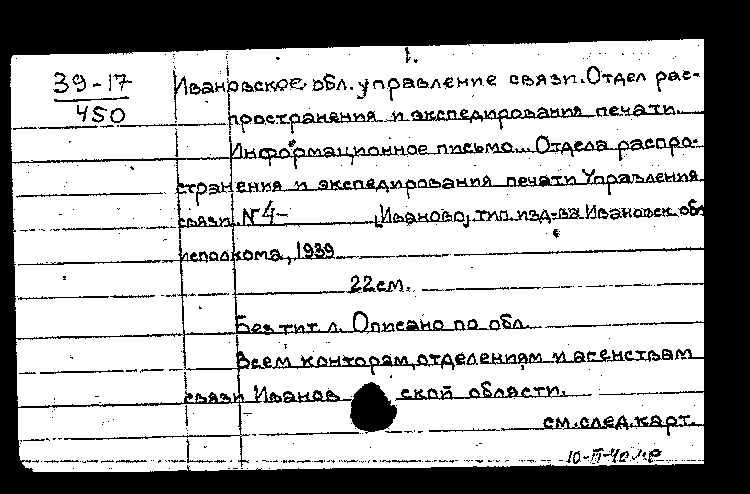 1.
39-17
450
Ивановское обл. управление связи. Отдел рас-
пространения и экспедирования печати.
Информационное письмо... Отдела распро-
странения и экспедирования печати Управления
связи. № 4-          [Иваново], тип. изд-ва Ивановск. обл
исполкома, 1939
22 см.
Без тит. л. Описано по обл.
Всем конторам, отделениям и агенствам
связи Ивановской области.
см. след. карт.
10-III-40